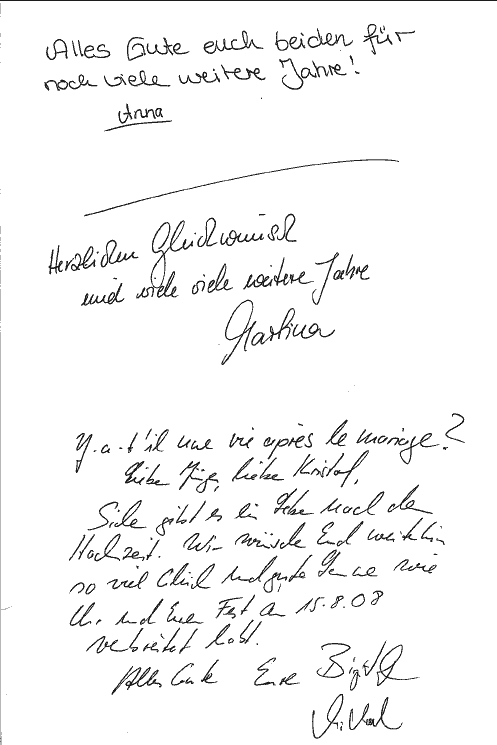 Alles Gute euch beiden für
noch viele weitere Jahre!
Anna
Herzlichen Glückwunsch
und viele viele weitere Jahre
Martina
Y-a-t'il une vie après le mariage?
Liebe liebe Kristof,
gibt es ein Leben nach der
Hochzeit. Wir wünsche Euch weiterhin
so viel Glück und gute Laune wie
Ihr und Euer Fest am 15.8.08
verbreitet habt.
Alles Gute Eure